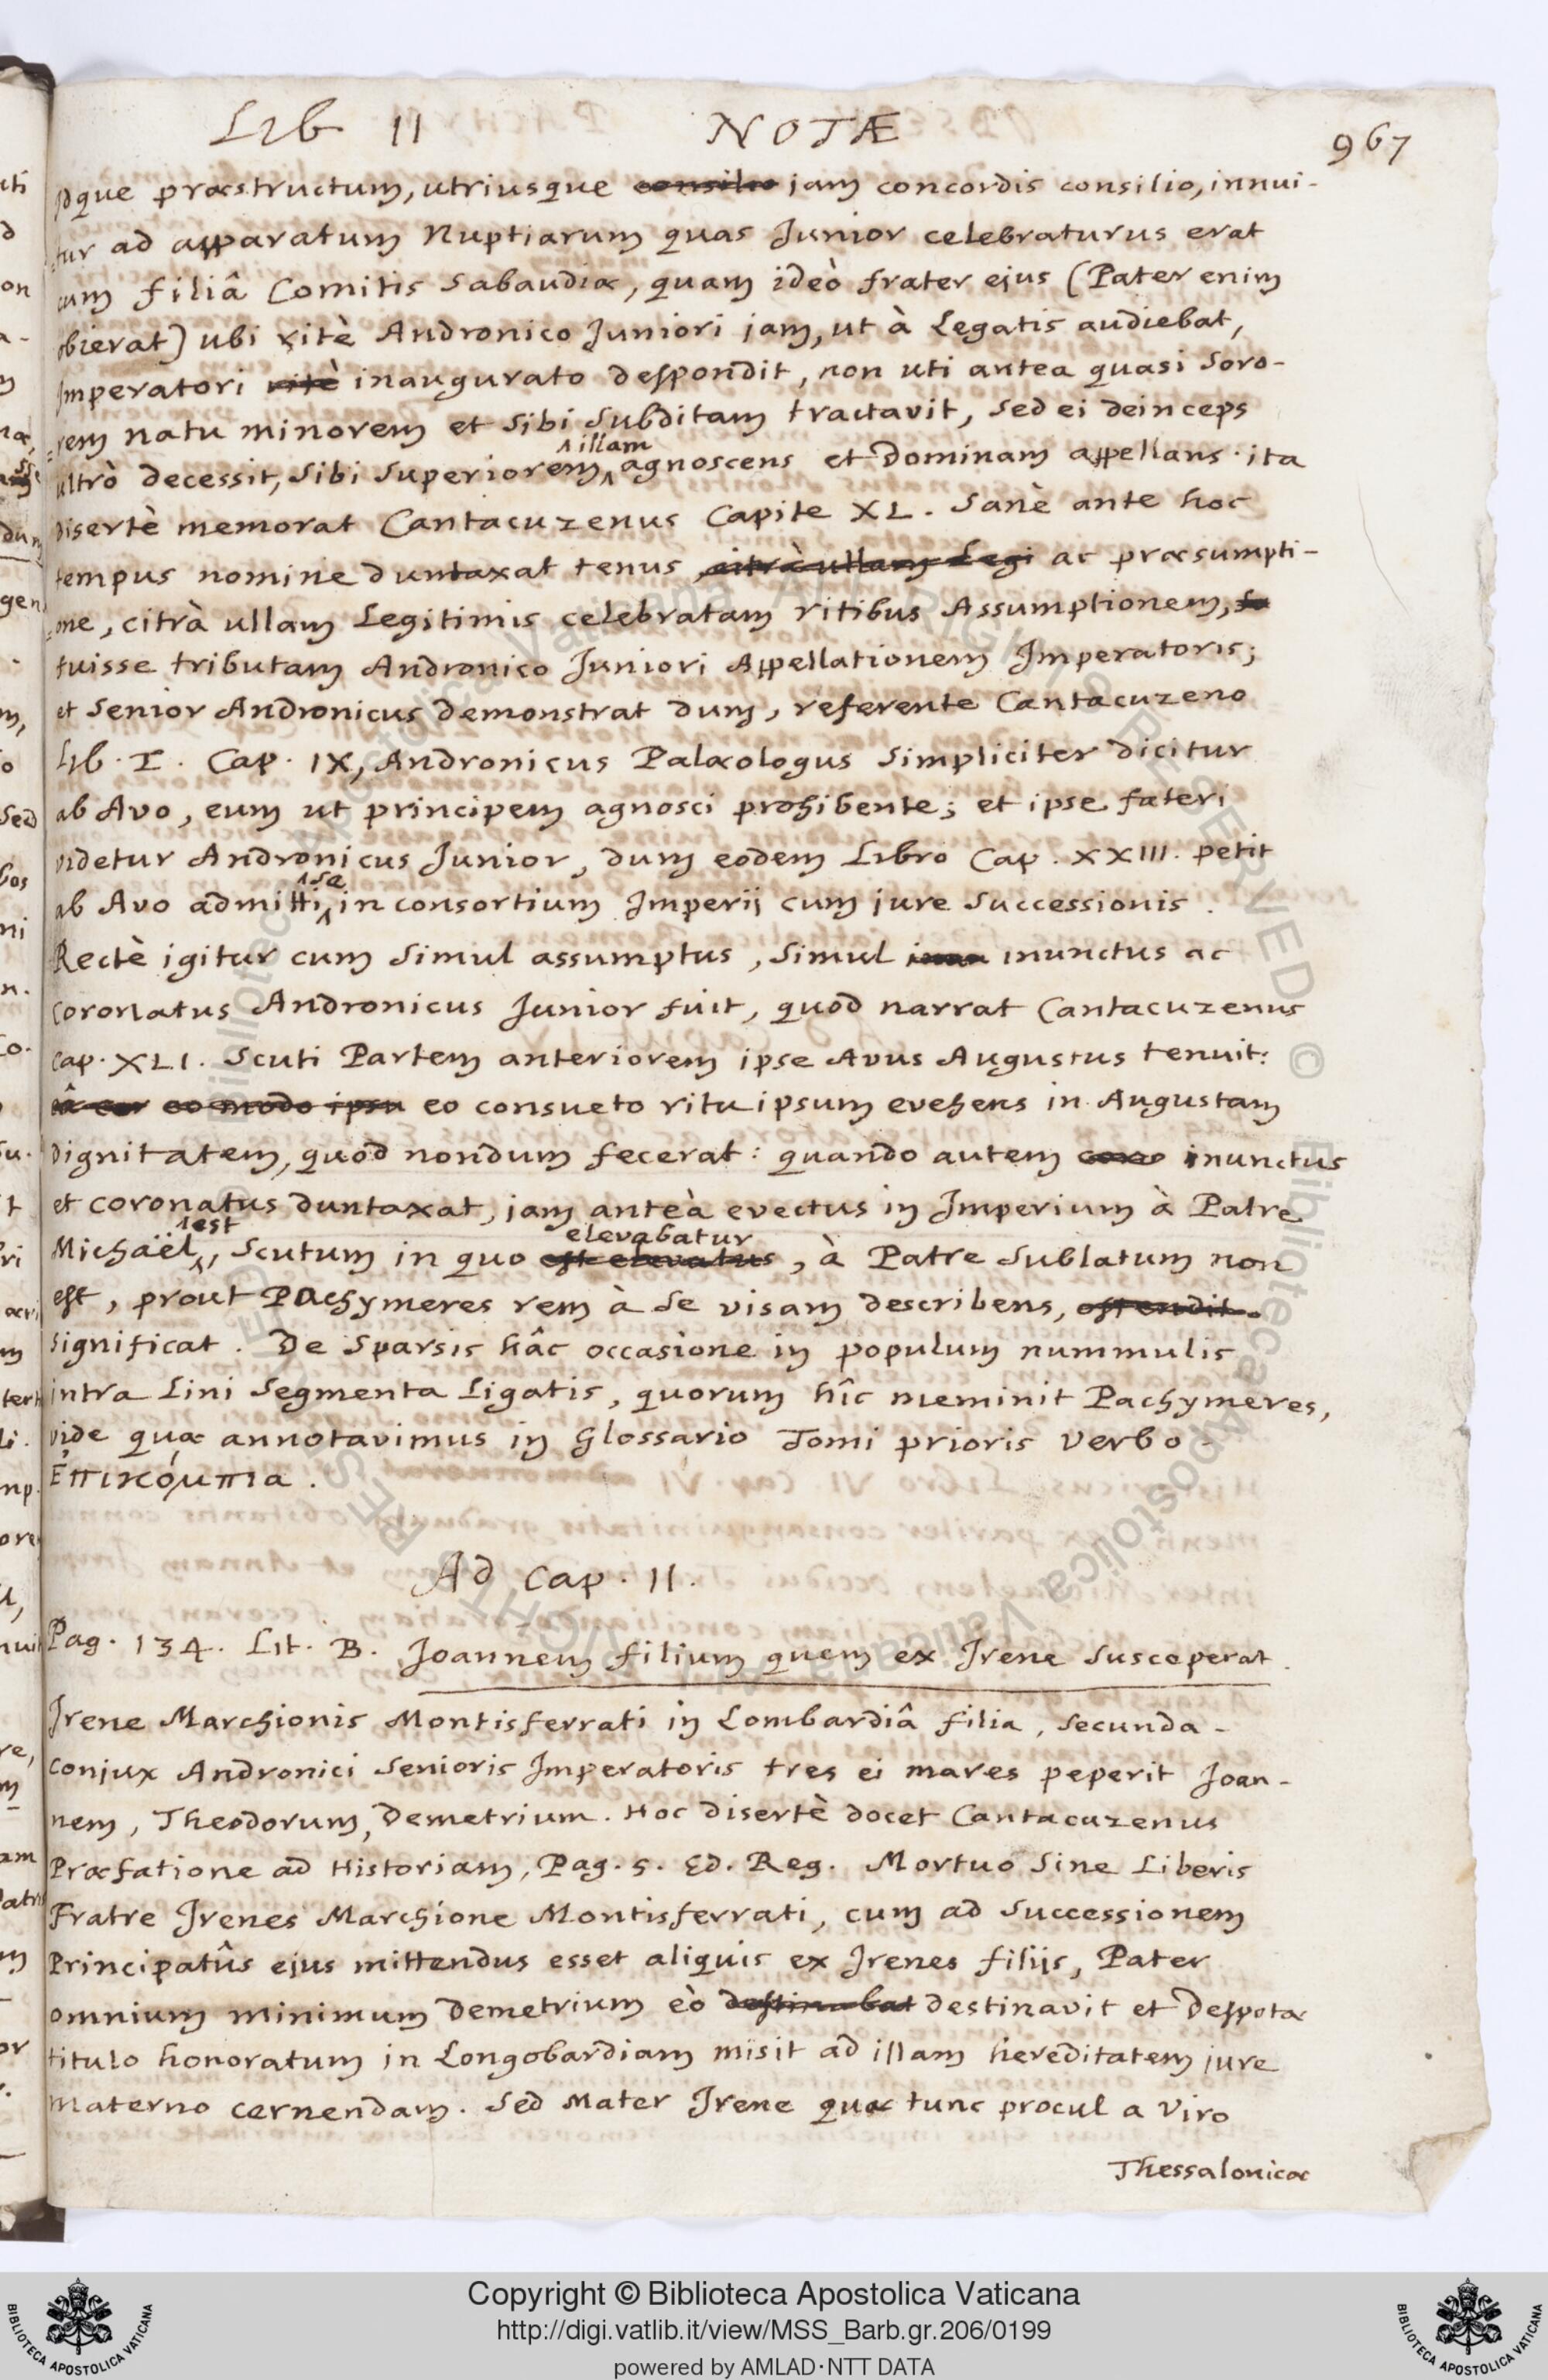 LIb II NOTÆ 967
idque præstructum, utriusque consilio jam concordis consilio, innui-
=tur ad apparatum Nuptiarum quas Junior celebraturus erat
cum filiâ Comitis Sabaudiæ, quam ideò frater ejus (Pater enim
obierat) ubi ritè Andronico Juniori jam, ut à Legatis audiebat,
Imperatori ritè inaugurato despondit, non uti antea quasi Soro-
=rem natu minorem et Sibi Subditam tractavit, Sed ei deinceps
ultrò decessit, Sibi Superiorem illam agnoscens et Dominam appellans. ita
disertè memorat Cantacuzenus Capite XL. Sanè ante hoc
tempus nomine duntaxat tenus citrà ullam Legi ac præsumpti-
=one, citrà ullam Legitimis celebratam ritibus Assumptionem, fu
fuisse tributam Andronico Juniori Appellationem Imperatoris;
et Senior Andronicus demonstrat dum, referente Cantacuzeno
LIb. I. Cap. IX, Andronicus Palæologus Simpliciter dicitur
ab Avo, eum ut principem agnosci prohibente; et ipse fateri
videtur Andronicus Junior, dum eodem Libro Cap. XXIII. petit
ab Avo admitti se in consortium Imperij cum jure Successionis.
Rectè igitur cum Simul assumptus, Simul inunctus ac
coronatus Andronicus Junior fuit, quod narrat Cantacuzenus
Cap. XLI. Scuti Partem anteriorem ipse Avus Augustus tenuit:
eo modo ipsu eo consueto ritu ipsum evehens in Augustam
Dignitatem, quod nondum fecerat: quando autem coro inunctus
et coronatus duntaxat, jam anteà evectus in Imperium à Patre
Michaël est, Scutum in quo est elevatus elevabatur, à Patre Sublatum non
est, prout Pachymeres rem à Se visam describens, ostendit.
significat. De Sparsis hâc occasione in populum nummulis
intra Lini Segmenta Ligatis, quorum hîc meminit Pachymeres,
vide quæ annotavimus in Glossario Tomi prioris Verbo
Ἐπικόμπια.
Ad Cap. II.
Pag. 134. Lit. B. Joannem filium quem ex Irene Susceperat.
Irene Marchionis Montisferrati in Lombardiâ filia, Secunda
conjux Andronici Senioris Imperatoris tres ei mares peperit Joan-
nem, Theodorum, Demetrium. Hoc disertè docet Cantacuzenus
Præfatione ad Historiam, Pag. 5. Ed. Reg. Mortuo Sine Liberis
Fratre Irenes Marchione Montisferrati, cum ad Successionem
Principatûs ejus mittendus esset aliquis ex Irenes filijs, Pater
omnium minimum Demetrium eò destinabat destinavit et Despotæ
titulo honoratum in Longobardiam misit ad illam hereditatem jure
materno cernendam. Sed Mater Irene quæ tunc procul a Viro
Thessalonicæ
Copyright © Biblioteca Apostolica Vaticana
http://digi.vatlib.it/view/MSS_Barb.gr.206/0199
powered by AMLAD·NTT DATA